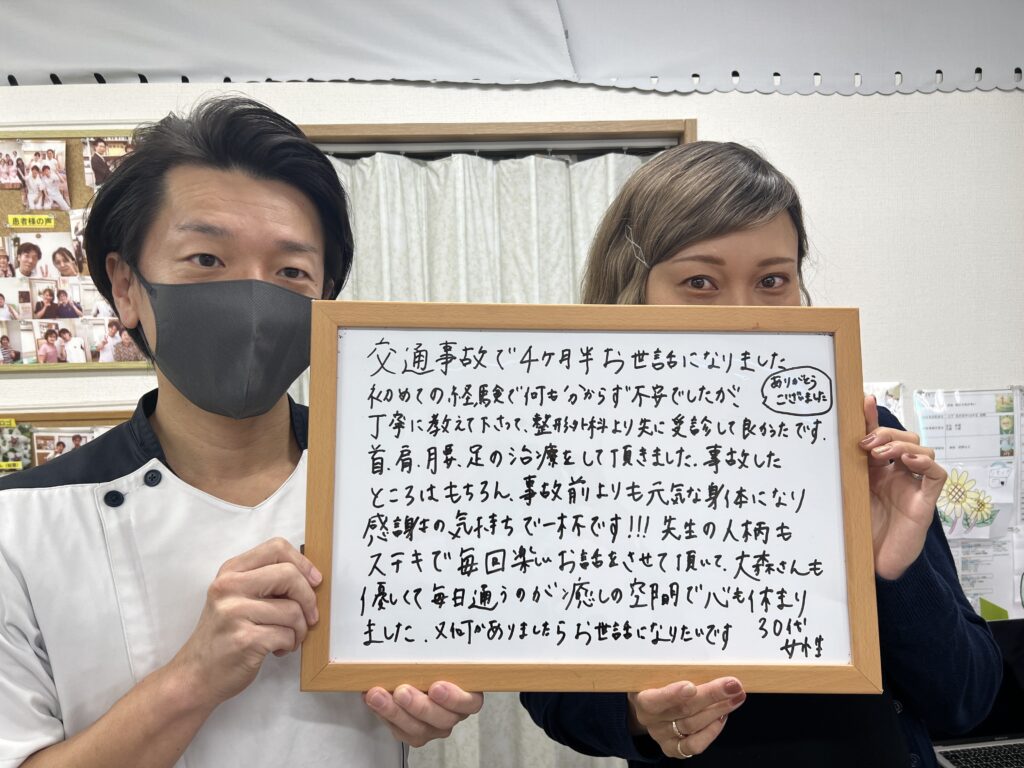 患者様の声
交通事故で4ヶ月半お世話になりました
ありがとう
ございました
初めての経験で何も分からず不安でしたが、
丁寧に教えて下さって、整形外科より先に受診して良かったです.
首、肩、腰、足の治療をして頂きました。事故した
ところはもちろん、事故前よりも元気な身体になり
感謝の気持ちで一杯です!!! 先生の人柄も
ステキで毎回楽しいお話をさせて頂いて、大森さんも
優しくて毎日通うのが癒しの空間で心も休まり
ました、又何かありましたらお世話になりたいです
30代
女性